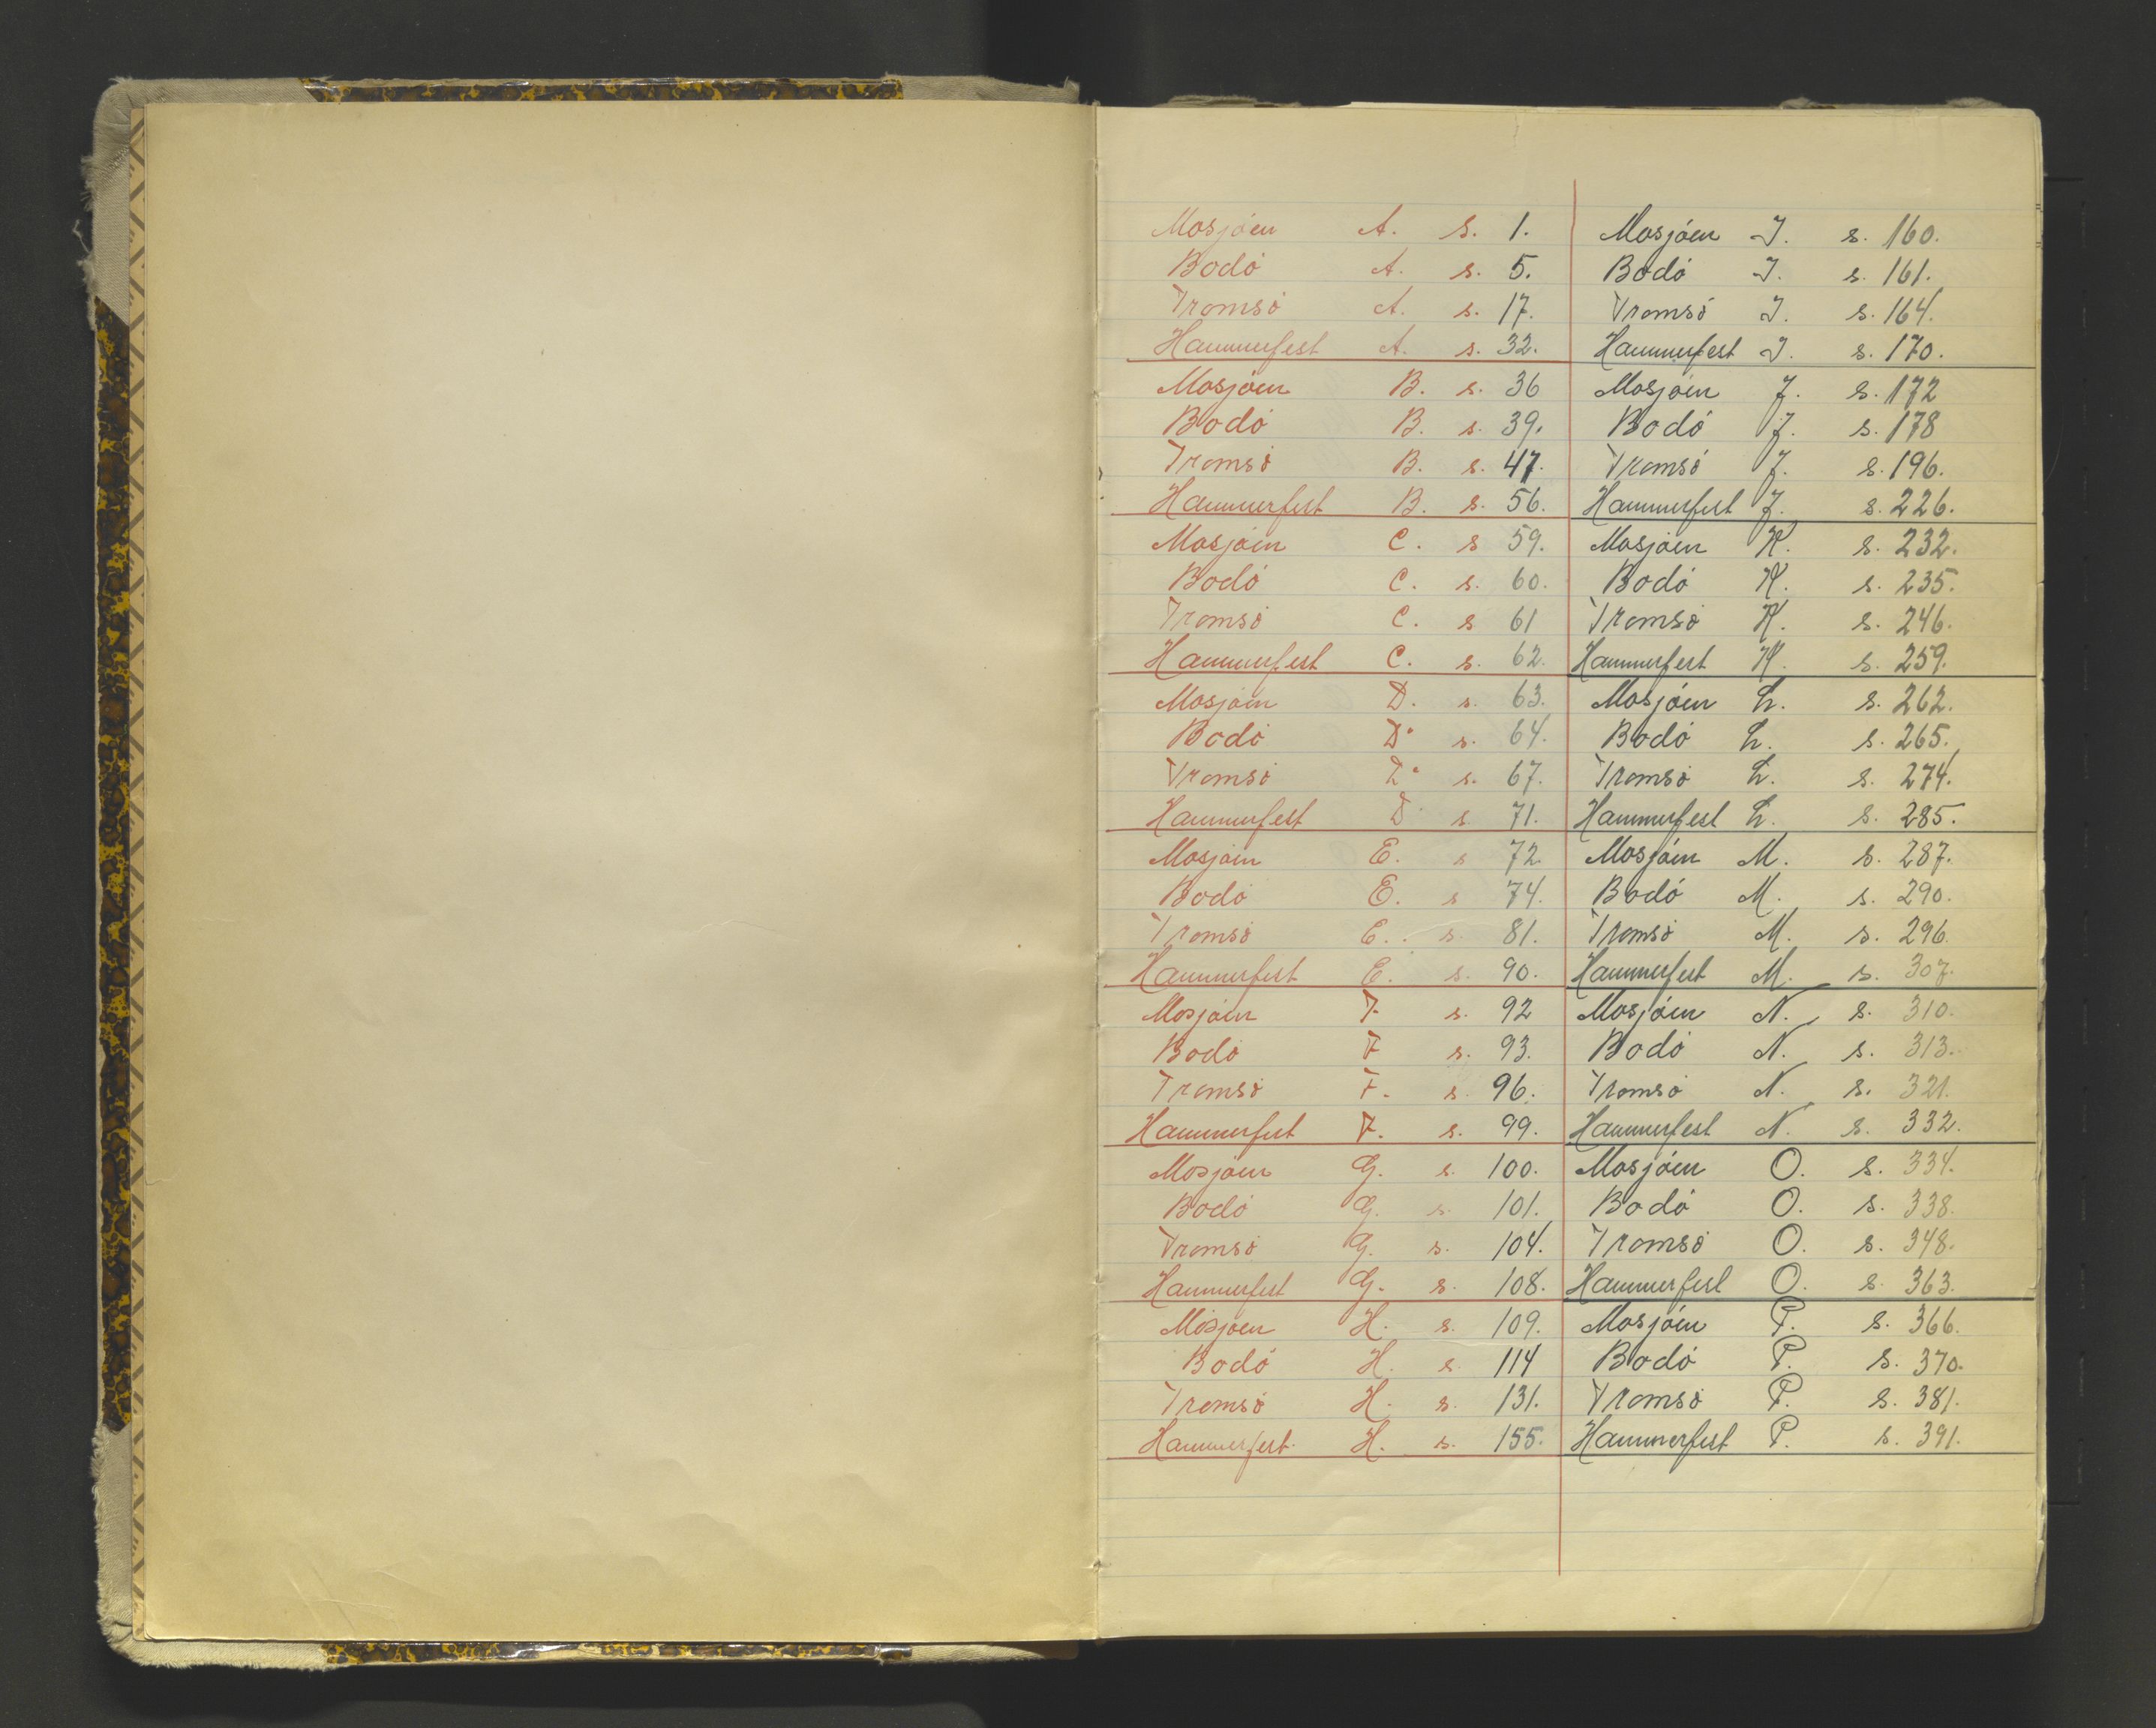 Mosjöen A. s. 1.
Bodö A. s. 5.
Tromsö A. s. 17.
Hammerfest A. s. 32.
Mosjöen B. s. 36
Bodö B. s. 39.
Tromsö B. s. 47.
Hammerfest B. s. 56.
Mosjöen C. s 59.
Bodö C. s. 60.
Tromsö C. s 61
Hammerfest C. s. 62.
Mosjöen D. s. 63.
Bodö D. s. 64.
Tromsö D. s. 67.
Hammerfest D. s 71.
Mosjöen E. s 72.
Bodö E. s 74.
Tromsö E. s. 81.
Hammerfest E. s. 90.
Mosjöen F. s. 92
Bodö F s. 93.
Tromsö F. s. 96.
Hammerfest F. s. 99.
Mosjöen G. s. 100.
Bodö G. s. 101.
Tromsö G. s. 104.
Hammerfest G. s. 108.
Mosjöen H. s. 109.
Bodö H. s. 114
Tromsö H. s. 131.
Hammerfest. H. s. 155.
Mosjöen I. s. 160.
Bodö I. s. 161.
Tromsö I. s. 164.
Hammerfest I. s. 170.
Mosjöen J. s. 172
Bodö J. s. 178
Tromsö J. s. 196.
Hammerfest J. s. 226.
Mosjöen K. s. 232.
Bodö K. s. 235.
Tromsö K. s. 246.
Hammerfest K. s. 259.
Mosjöen L. s. 262.
Bodö L. s. 265.
Tromsö L. s. 274.
Hammerfest L. s. 285.
Mosjöen M. s. 287.
Bodö M. s. 290.
Tromsö M. s. 296.
Hammerfest M. s. 307.
Mosjöen N. s. 310.
Bodö N. s. 313.
Tromsö N. s. 321.
Hammerfest N. s. 332.
Mosjöen O. s. 334.
Bodö O. s. 338.
Tromsö O. s. 348.
Hammerfest O. s. 363.
Mosjöen P. s. 366.
Bodö P. s. 370.
Tromsö P. s. 381.
Hammerfest P. s. 391.